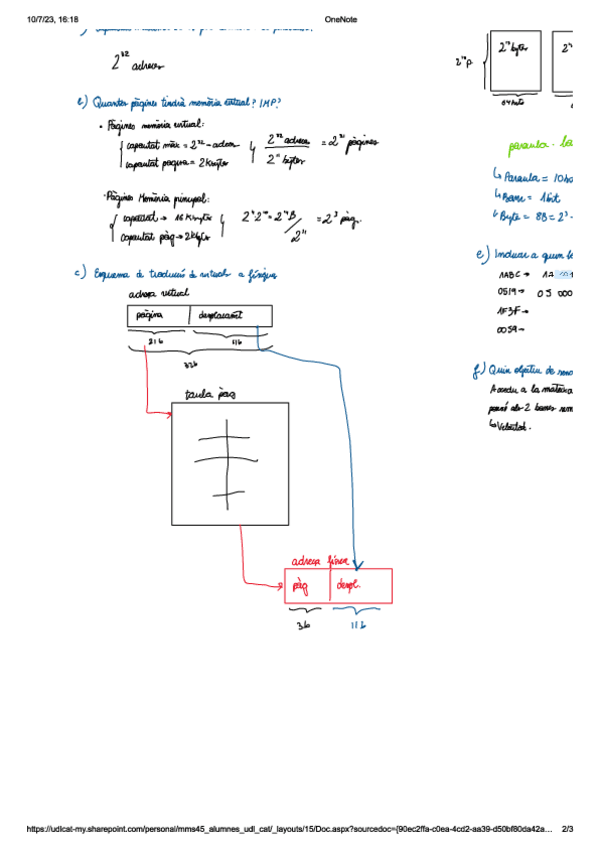 10/7/23, 16:18
OneNote
2³² adreces
b) Quantes pàgines tindrà memòria virtual? I MP?
• Pàgines memòria virtual:
capacitat màx = 2³² - adreces
capacitat pàgina = 2 Kbytes
2³² adreces / 2¹¹ bytes = 2²¹ pàgines
• Pàgines Memòria principal:
capacitat → 16 Kbytes
capacitat pàg → 2 Kbytes
2⁴ 2¹⁰ = 2¹⁴ B / 2¹¹ = 2³ pàg.
c) Esquema de traducció de virtual a física
adreça virtual
pàgina desplaçament
21b 11b
32b
taula pàg
adreça física
pàg despl.
3b 11b
2¹⁴ bytes
paraula
Paraula = 10
Banc = 1bit
Byte = 8B = 2³
e) Indicar a quin
1ABC → 1A
0519 → 05 000
1F3F →
0059 →
f) Quin objectiu de
Accedir a la
Velocitat.
https://udlcat-my.sharepoint.com/personal/mms45_alumnes_udl_cat/_layouts/15/Doc.aspx?sourcedoc={90ec2ffa-c0ea-4cd2-aa39-d50bf80da42a…
2/3